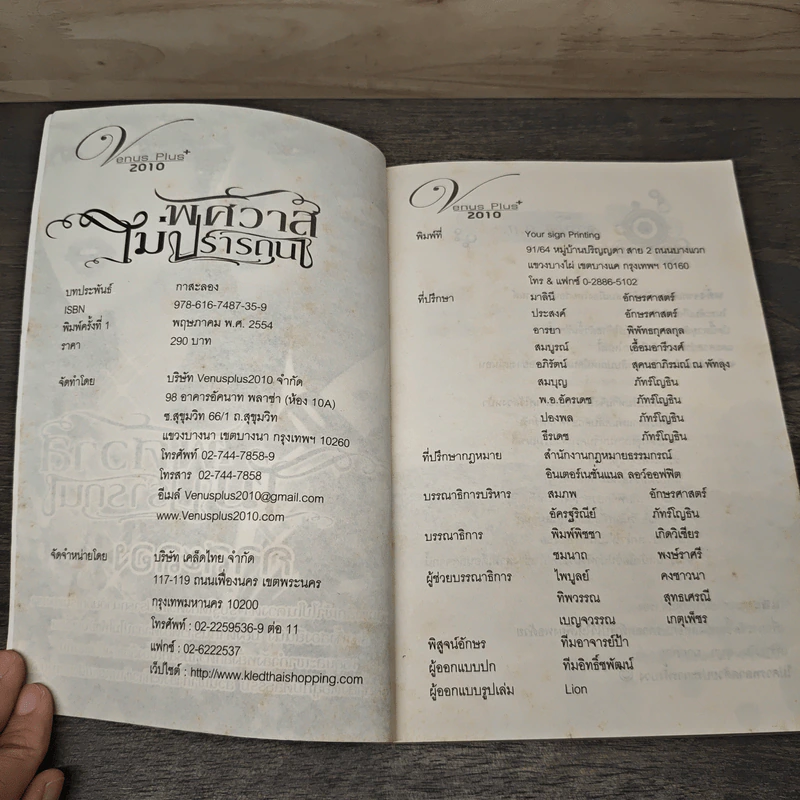 Venus Plus+
2010
พิศวาส
ไม่ปรารถนา
บทประพันธ์ กาสะลอง
ISBN 978-616-7487-35-9
พิมพ์ครั้งที่ 1 พฤษภาคม พ.ศ. 2554
ราคา 290 บาท
จัดทำโดย บริษัท Venusplus2010 จำกัด
98 อาคารอัคนาท พลาซ่า (ห้อง 10A)
ซ.สุขุมวิท 66/1 ถ.สุขุมวิท
แขวงบางนา เขตบางนา กรุงเทพฯ 10260
โทรศัพท์ 02-744-7858-9
โทรสาร 02-744-7858
อีเมล์ Venusplus2010@gmail.com
www.Venusplus2010.com
จัดจำหน่ายโดย บริษัท เคล็ดไทย จำกัด
117-119 ถนนเฟื่องนคร เขตพระนคร
กรุงเทพมหานคร 10200
โทรศัพท์ : 02-2259536-9 ต่อ 11
แฟกซ์ : 02-6222537
เว็ปไซต์ : http://www.kledthaishopping.com
Venus Plus+
2010
พิมพ์ที่ Your sign Printing
91/64 หมู่บ้านปริญญดา สาย 2 ถนนบางแวก
แขวงบางไผ่ เขตบางแค กรุงเทพฯ 10160
โทร & แฟกซ์ 0-2886-5102
ที่ปรึกษา มาลินี อักษรศาสตร์
ประสงค์ อักษรศาสตร์
อารยา พิพัทธกุศลกุล
สมบูรณ์ เอื้อมอารีวงศ์
อภิรัตน์ สุคนธาภิรมณ์ ณ พัทลุง
สมบุญ ภัทร์โญธิน
พ.อ.อัครเดช ภัทร์โญธิน
ปองพล ภัทร์โญธิน
ธีรเดช ภัทร์โญธิน
ที่ปรึกษากฎหมาย สำนักงานกฎหมายธรรมกรณ์
อินเตอร์เนชั่นแนล ลอว์ออฟฟิต
บรรณาธิการบริหาร สมภพ อักษรศาสตร์
อัครฐริณีย์ ภัทร์โญธิน
บรรณาธิการ พิมพ์พิชชา เกิดวิเชียร
ชมนาถ พงษ์ราศรี
ผู้ช่วยบรรณาธิการ ไพบูลย์ คงชาวนา
ทิพวรรณ สุทธเศรณี
เบญจวรรณ เกตุเพ็ชร
พิสูจน์อักษร ทีมอาจารย์ป้า
ผู้ออกแบบปก ทีมอิทธิ์ชพัฒน์
ผู้ออกแบบรูปเล่ม Lion